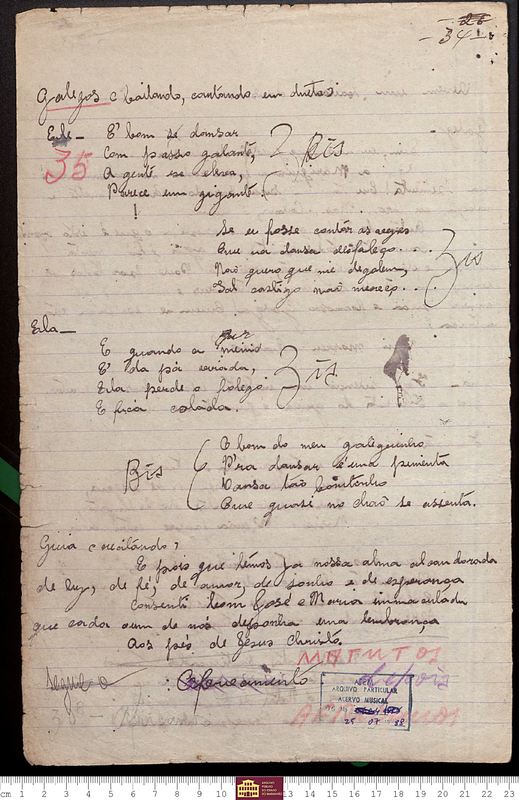 - 26
- 34 -
Galegos (bailando, cantando em dueto)
Ele - E' bom sé dansar
35
Com passo galante,
A gente se eleva,
Parece um gigante!
2 Bis
Se eu fosse contár as vezes
Que na dansa desfalego...
Não quero que me degolem,
Tal castigo não mereço...
Bis
Ela -
E quando a
E' da pá virada,
Ella perde o folego
E fica colada.
Bis
O bom do meu galeguinho
P'ra dansar é uma pimenta
Dansa tão bonitinho
Que quasi no chão se assenta.
Bis
Guia (recitando)
E pois que têmos ja nossa alma alcandorada
de luz, de fé, de amor, de sonho e de esperança
Consenti bom José e Maria immaculada
que cada um de nós deponha uma lembrança
Aos pés de Jesus Christo.
MATUTOS
Segue o Oferecimento depois
APEM
ARQUIVO PARTICULAR
ACERVO MUSICAL
25 07 88
cm 1 2 3 4 5 6 7 8 9 10 11 12 13 14 15 16 17 18 19 20 21 22 23